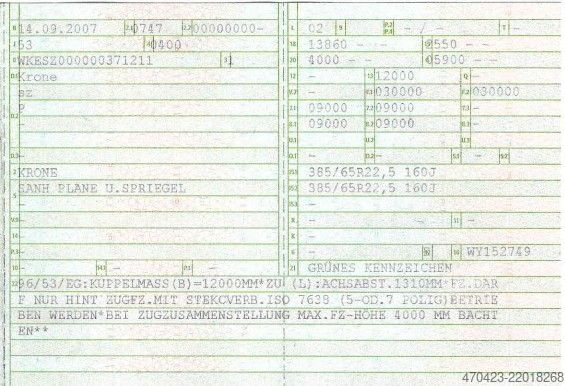 B 14.09.2007 2.1 0747 2.2 00000000- L 02 9 - P.2 P.4 - / - T -
J 53 4 0400 18 13860 - - 19 2550 - -
E WKESZ000000371211 3 1 20 4000 - - G 05900 - -
D.1 Krone 12 - 13 12000 Q -
SZ V.7 - F.1 030000 F.2 030000
P 7.1 09000 7.2 09000 7.3 -
- 8.1 09000 8.2 09000 8.3 -
D.3 - U.1 - U.2 - U.3 - O.1 - O.2 - S.1 - S.2 -
2 KRONE 15.1 385/65R22,5 160J
5 SANH PLANE U.SPRIEGEL 15.2 385/65R22,5 160J
- 15.3 -
V.9 - R - 11 -
- K -
P.3 - 6 - 17 - 16 WY152749
10 - 14.1 - P.1 - 21 GRÜNES KENNZEICHEN
22 96/53/EG:KUPPELMASS(B)=12000MM*ZU (L):ACHSABST.1310MM*FZ.DAR
F NUR HINT ZUGFZ.MIT STEKCVERB.ISO 7638 (5-OD.7 POLIG)BETRIE
BEN WERDEN*BEI ZUGZUSAMMENSTELLUNG MAX.FZ-HÖHE 4000 MM BACHT
EN**
470423-22018268